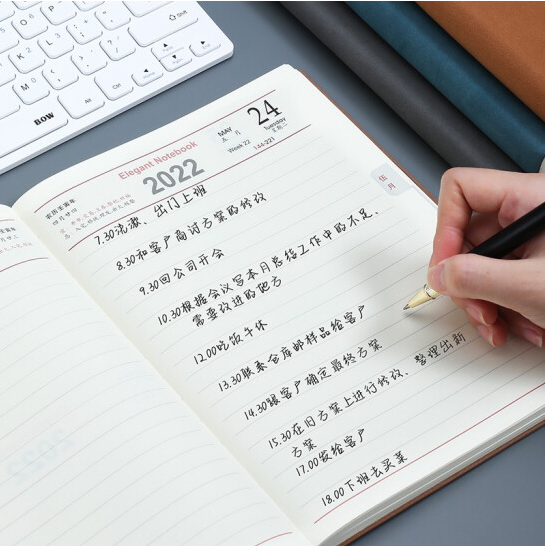 Bow
Alt
Ctrl
Shift
Elegant Notebook
2022
MAY
五 月
Week 22
24
Tuesday
星期二
144-221
农历壬寅年
四月廿四
伍
月
7.30洗漱、出门上班
8.30和客户商讨方案的修改
9.30回公司开会
10.30根据会议写本月总结工作中的不足、
需要改进的地方
12.00吃饭午休
13.30联系仓库邮样品给客户
14.30跟客户确定最终方案
15.30在旧方案上进行修改、整理出新
方案
17.00发给客户
18.00下班去买菜